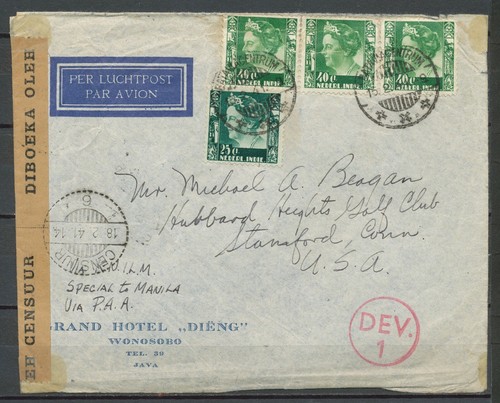 PER LUCHTPOST
PAR AVION
40 c.
NEDERL. INDIE
40 c.
NEDERL. INDIE
40 c.
NEDERL. INDIE
25 c.
NEDERL. INDIE
DIBOEKA OLEH
CENSUUR
Mr. Michael A. Beagan
Hubbard Heights Golf Club
Stamford, Conn.
U.S.A.
6
18.2.41.14
CENSUUR
K.N.I.L.M.
SPECIAL TO MANILA
VIA P.A.A.
GRAND HOTEL „DIËNG"
WONOSOBO
TEL. 39
JAVA
DEV.
1